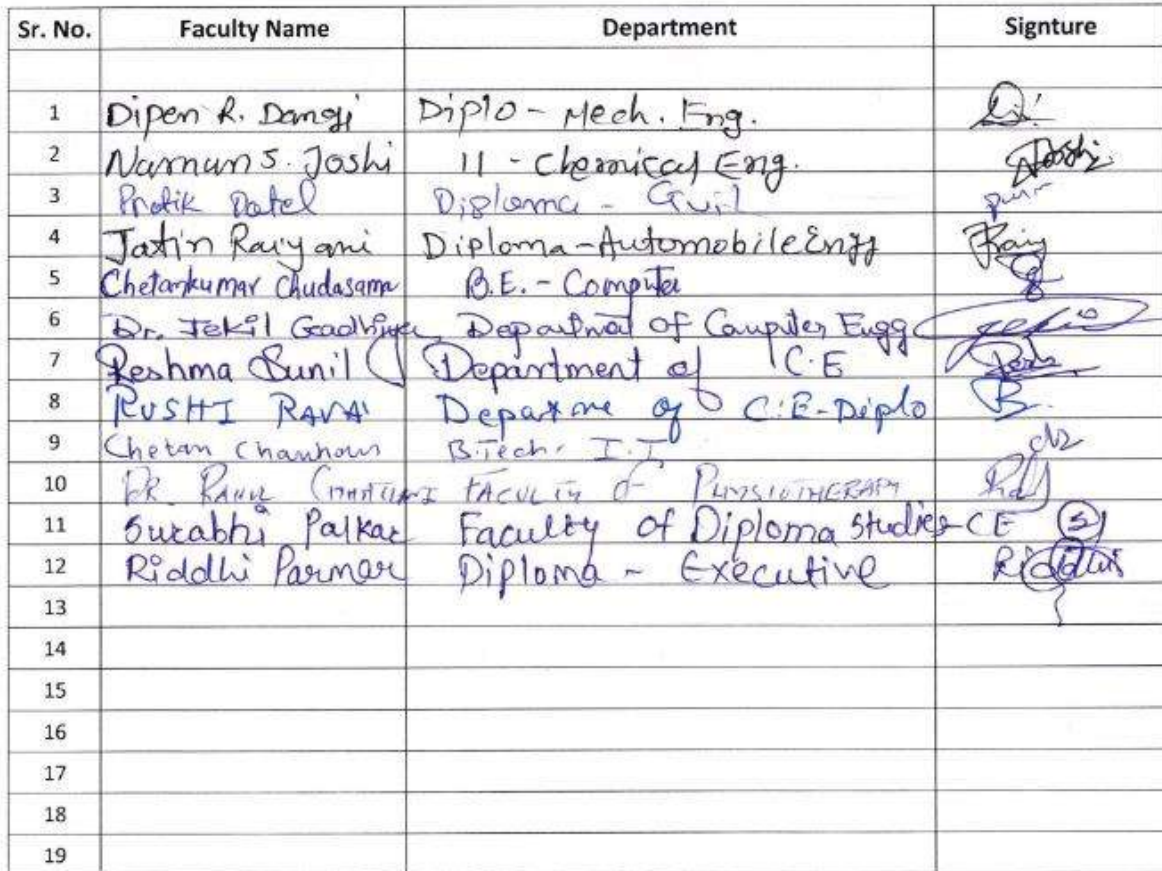 Sr. No. Faculty Name Department Signture
1 Dipen R. Dangi Diplo - Mech. Eng.
2 Namun S. Joshi 11 - Chemical Eng. Joshi
3 Pratik Patel Diploma - Civil
4 Jatin Raiyani Diploma - Automobile Engg
5 Chetankumar Chudasama B.E. - Computer
6 Dr. Jekil Gadhiya Department of Computer Engg
7 Reshma Sunil Department of C.E
8 RUSHI RAVAL of C.E - Diplo
9 Chetan Chauhan B.Tech. I.T
10 DR. FACULTY OF PHYSIOTHERAPY
11 Surabhi Palkar Faculty of Diploma Studies - CE
12 Riddhi Parmar Diploma - Executive Riddhi
13
14
15
16
17
18
19